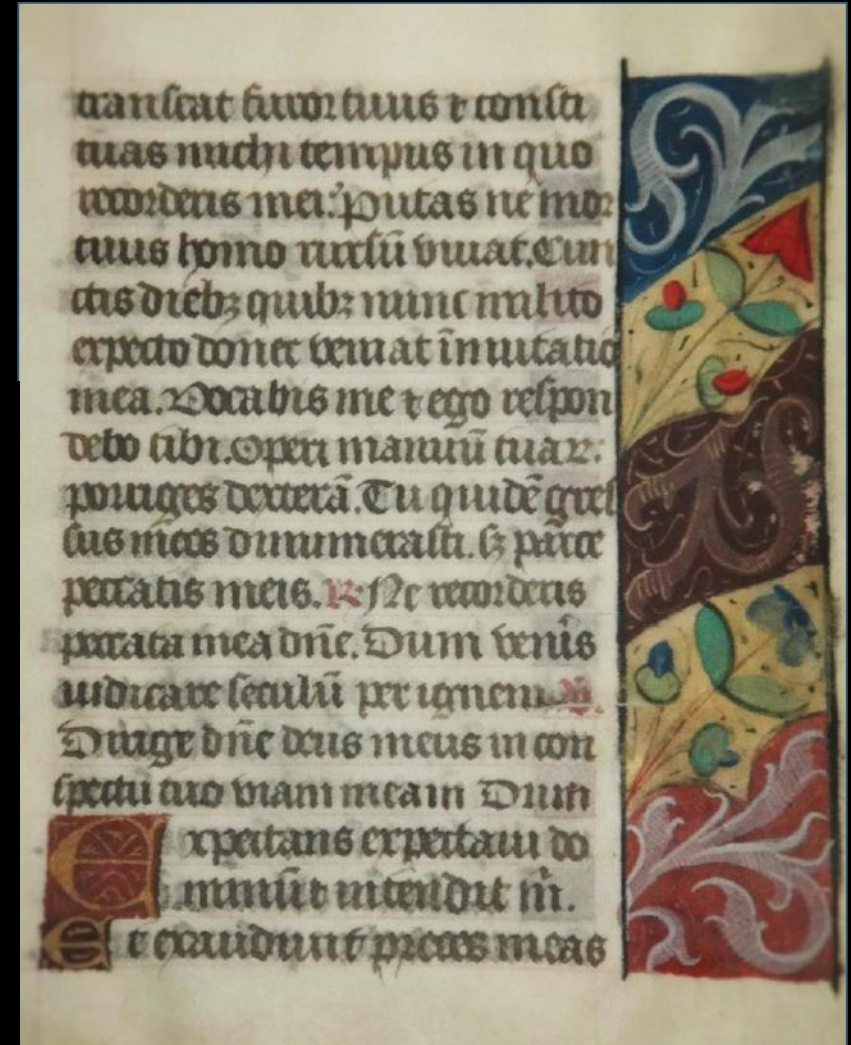 transeat furor tuus ⁊ consti
tuas michi tempus in quo
recorderis mei. Putas ne mor
tuus homo rursū vivat. Cun
ctis dieb; quib; nunc milito
expecto donec veniat īmutatio
mea. Vocabis me ⁊ ego respon
debo tibi. Operi manuū tuaꝝ.
porriges dexterā. Tu quidē gres
sus meos dinumerasti. sꝫ parce
peccatis meis. ℟ Ne recorderis
peccata mea dn̄e. Dum veneris
iudicare seculū per ignem. ℣.
Dirige dn̄e deus meus in con
spectu tuo viam meam Dum
Expectans expectavi do
minū ⁊ intendit m̄.
Et exaudivit preces meas